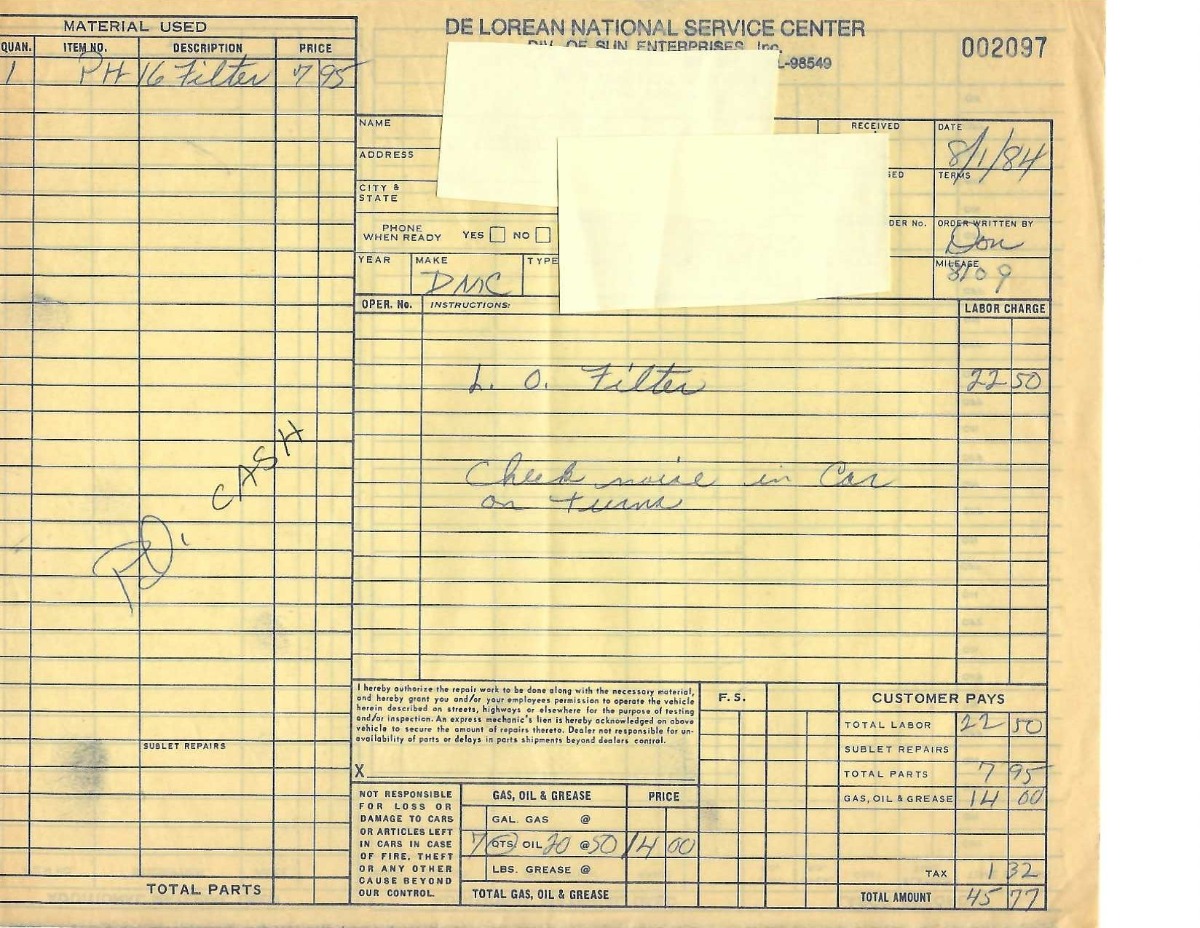 MATERIAL USED
QUAN. ITEM NO. DESCRIPTION PRICE
1 PH 16 Filter 7 95
DE LOREAN NATIONAL SERVICE CENTER
DIV. OF SUN ENTERPRISES, Inc.
L-98549
002097
NAME
ADDRESS
CITY &
STATE
RECEIVED
DATE
8/1/84
TERMS
PHONE
WHEN READY YES NO
DER No.
ORDER WRITTEN BY
Don
YEAR MAKE TYPE
DMC
MILEAGE
8109
OPER. No. INSTRUCTIONS: LABOR CHARGE
L. O. Filter 22 50
Check noise in Car
on turns
Pd. CASH
SUBLET REPAIRS
TOTAL PARTS
I hereby authorize the repair work to be done along with the necessary material,
and hereby grant you and/or your employees permission to operate the vehicle
herein described on streets, highways or elsewhere for the purpose of testing
and/or inspection. An express mechanic's lien is hereby acknowledged on above
vehicle to secure the amount of repairs thereto. Dealer not responsible for un-
availability of parts or delays in parts shipments beyond dealers control.
X
NOT RESPONSIBLE
FOR LOSS OR
DAMAGE TO CARS
OR ARTICLES LEFT
IN CARS IN CASE
OF FIRE, THEFT
OR ANY OTHER
CAUSE BEYOND
OUR CONTROL.
GAS, OIL & GREASE PRICE
GAL. GAS @
7 QTS. OIL 20 @ 50 14 00
LBS. GREASE @
TOTAL GAS, OIL & GREASE
F. S.
CUSTOMER PAYS
TOTAL LABOR 22 50
SUBLET REPAIRS
TOTAL PARTS 7 95
GAS, OIL & GREASE 14 00
TAX 1 32
TOTAL AMOUNT 45 77